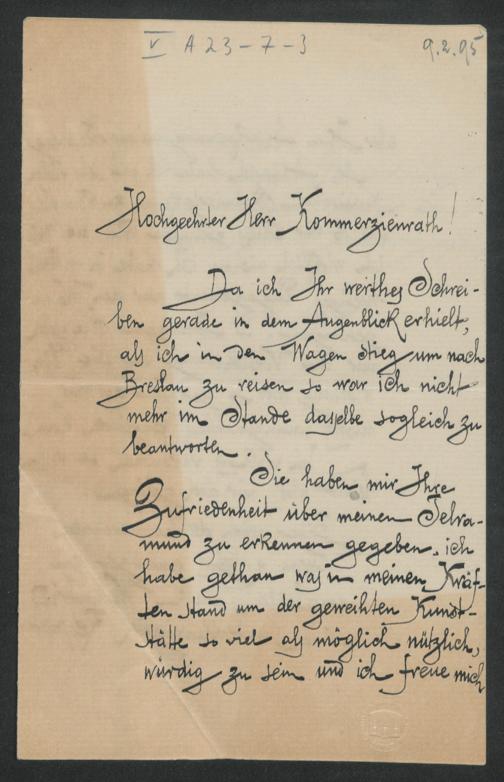 V A 23-7-3
9.2.95
Hochgeehrter Herr Kommerzienrath!
Da ich Ihr werthes Schrei-
ben gerade in dem Augenblick erhielt,
als ich in den Wagen stieg um nach
Breslau zu reisen so war ich nicht
mehr im Stande dasselbe sogleich zu
beantworten.
Sie haben mir Ihre
Zufriedenheit über meinen Telra-
mund zu erkennen gegeben, ich
habe gethan was in meinen Kräf-
ten stand um der geweihten Kunst-
stätte so viel als möglich nützlich,
würdig zu sein und ich freue mich